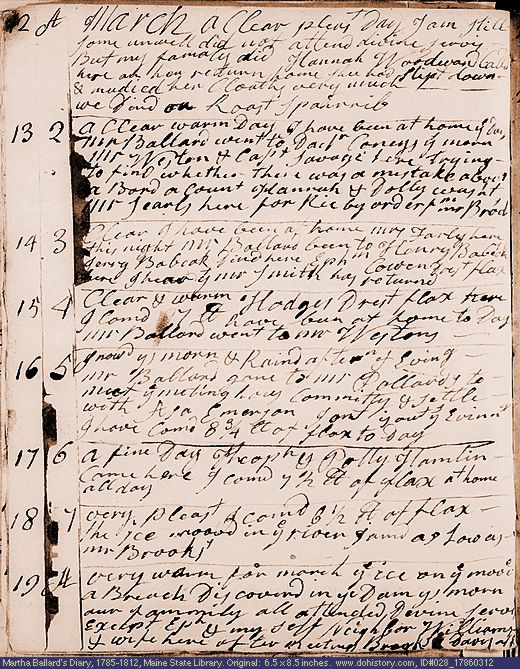 2 A March a Clear pleast Day I am Still
some unwell did not attend divine servs
But my famely did Hannah Woodward Calld
here as her return home she had slipt down
& mudied her Cloaths very much
we Dind on Roast Spairrib
13 2 a Clear warm Day I have been at home ys Day
Mr Ballard went to Dacn Conys ys morn
Mr Weston & Capt Savage here trying
to find whether there was a mistake about
a Bord acount Hannah & Dolly was at
Mr Searls here for Rie by order fm mr Brod
14 3 Clear I have been at home mrs Sarly here
this night Mr Ballard been to Henry Babcok
Jerry Babcok Dind here Ephm Cowen Drest flax
here I hear ys mr Smith has returnd
15 4 Clear & warm Hodges Drest flax here
I Comd 7 lt I have been at home to Day
Mr Ballard went to mr Westons
16 5 Snowd ys morn & Raind aftern & Evng
Mr Ballard gone to Mr Pollards to
meet ye meting hous Committy & settle
with Esa Emerson
I have Comd 8 3/4 lt of flax to Day
17 6 a fine Day Theophs Dolly Hamlin
Came here I comd 7 1/2 lt of flax at home
all day
18 7 very pleast I comd 6 1/2 lt of flax
the ice moovd in ye river Sand as Low as
mr Brooks'
19 A very warm for march ye ice on ye moove
a Breach Discoverd in ye Dam ys morn
our fammily all attended Divine servs
Except Eph & my self Neighbor Williams
& wife here Brooks Davis
Martha Ballard's Diary, 1785-1812, Maine State Library. Original: 6.5 x 8.5 inches. www.dohistory.org, ID#028_17860312